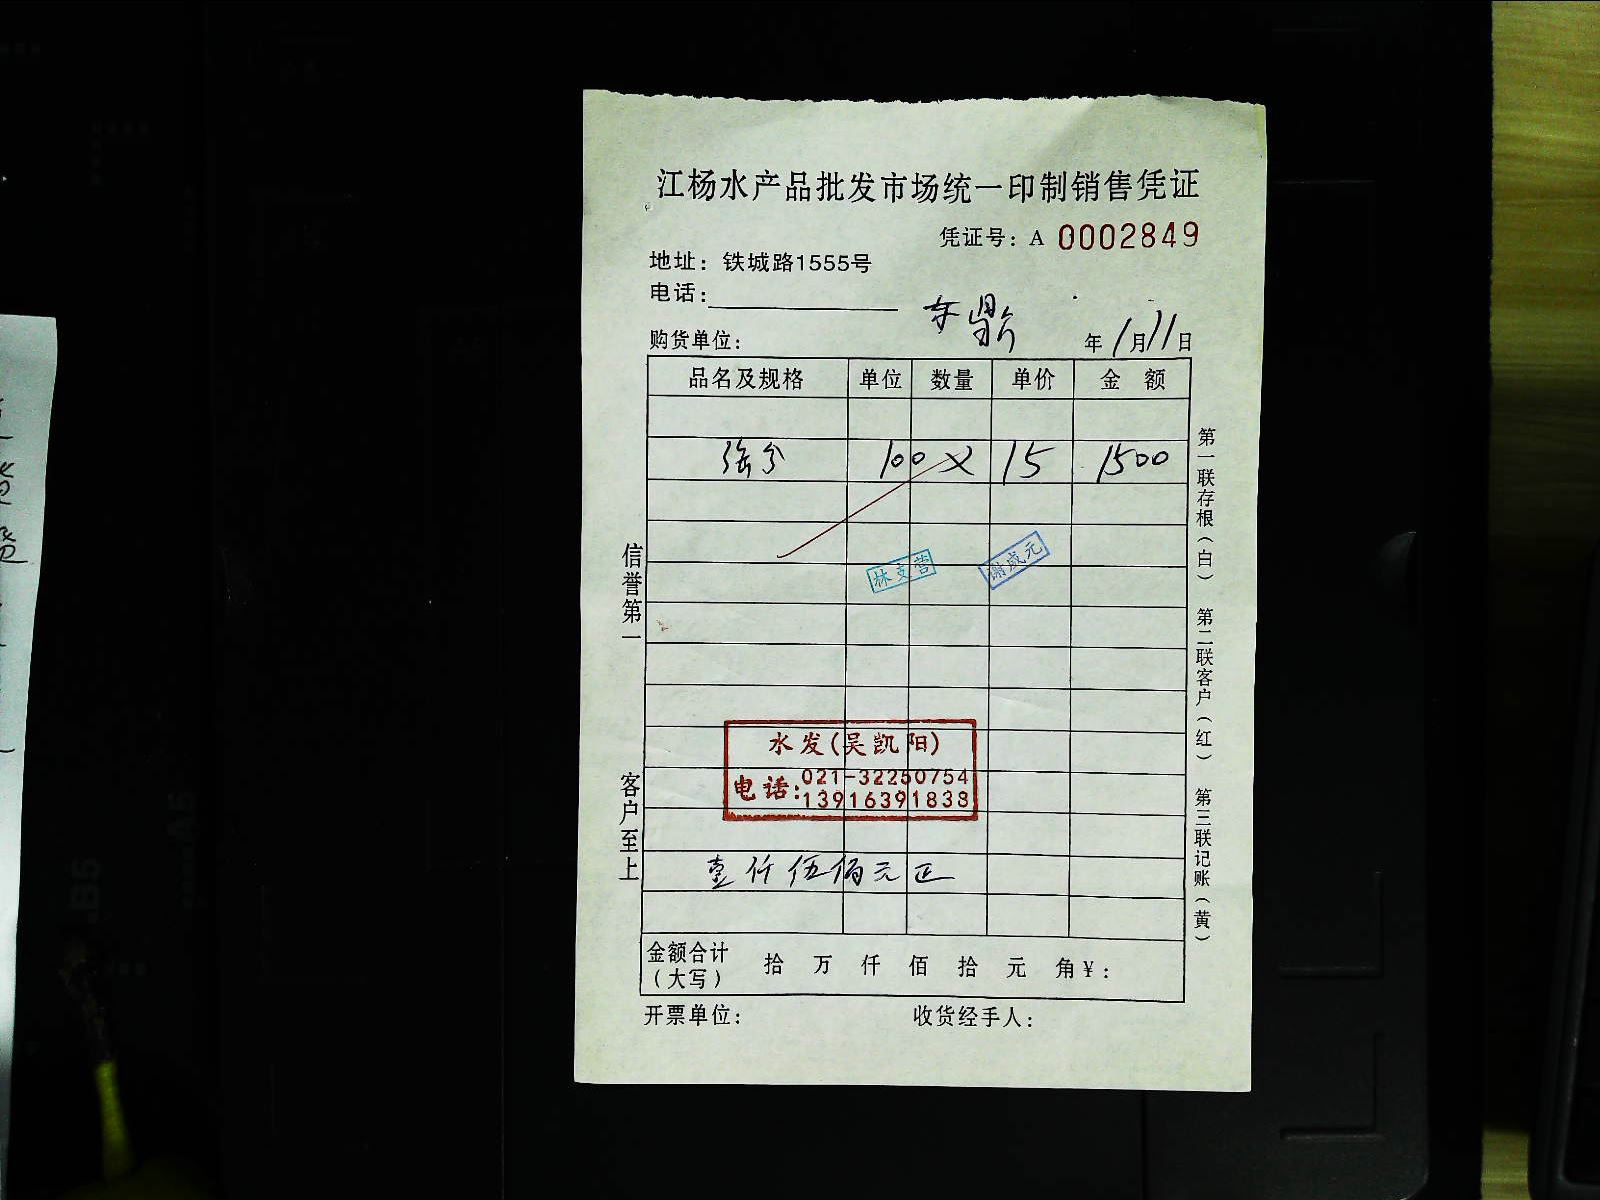 江杨水产品批发市场统一印制销售凭证
凭证号：A 0002849
地址：铁城路1555号
电话：
购货单位： 东鼎
年1月11日
品名及规格 单位 数量 单价 金额
100 × 15 1500
林支营
谢成元
水发(吴凯阳)
电话：021-32250754
13916391838
壹仟伍佰元正
金额合计（大写） 拾 万 仟 佰 拾 元 角￥：
开票单位： 收货经手人：
信誉第一
客户至上
第一联存根（白） 第二联客户（红） 第三联记账（黄）